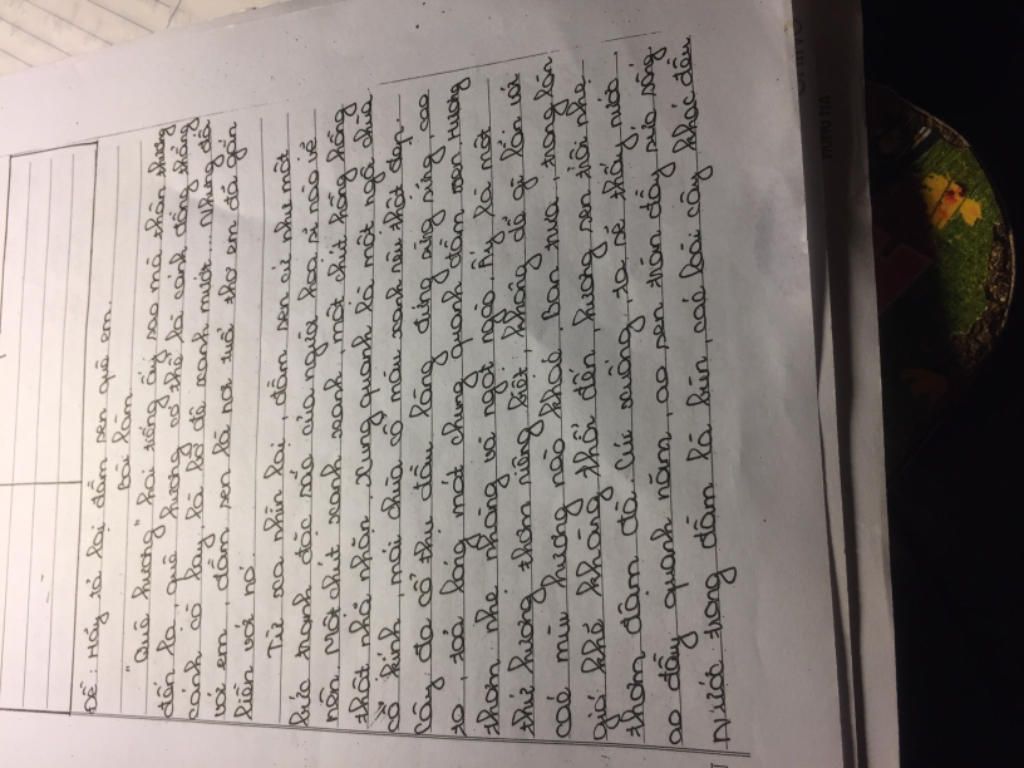 Đề: Hãy tả lại đầm sen quê em.
Bài làm
" Quê hương" hai tiếng ấy sao mà thân thương
đến lạ, quê hương có thể là cánh đồng thẳng
cánh cò bay, là bờ đê xanh mượt.. Nhưng đối
với em, đầm sen là nơi tuổi thơ em đã gắn
liền với nó.
Từ xa nhìn lại, đầm sen ví như một
bức tranh đặc sắc của người họa sĩ nào vẽ
nên. Một chút xanh xanh, một chút hồng hồng
thật nhã nhặn. Xung quanh là một ngôi chùa
cổ kính, mái chùa cổ màu xanh rêu thật đẹp.
Cây đa cổ thụ đầu làng đứng sừng sững, cao
to, toả bóng mát chung quanh đầm sen. Hương
thơm nhẹ nhàng và ngọt ngào ấy là một
thứ hương thơm riêng biệt, không dễ gì lẫn với
cái mùi hương nào khác. Ban trưa, trong làn
gió khẽ khàng thổi đến, hương sen thôi nhẹ
thơm đầm đà. Lúc xuống, ta sẽ thấy nước
ao đầy quanh năm, ao sen tràn đầy sức sống
Nước trong đầm lã lin, cái loài cây khác đều